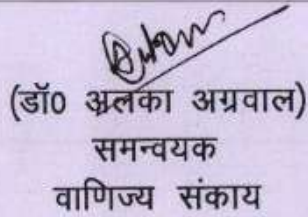 (डॉ0 अलका अग्रवाल)
समन्वयक
वाणिज्य संकाय